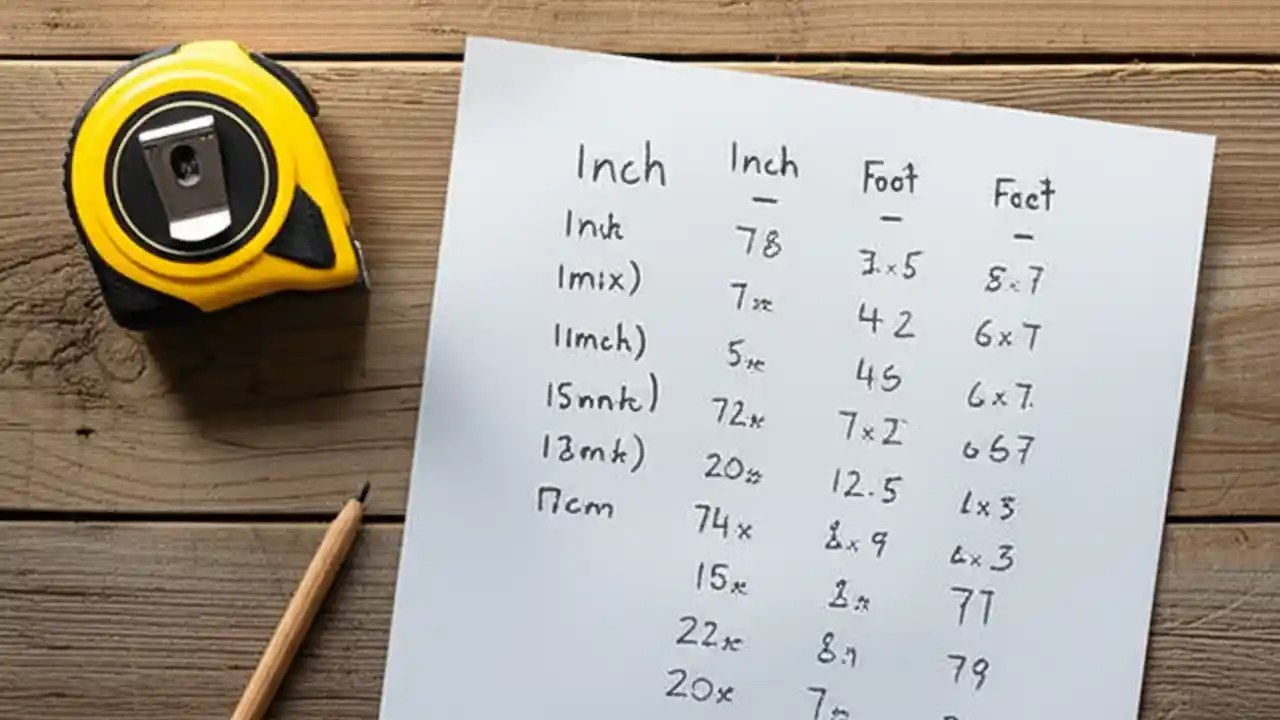 Inch Inch Foot Foct
Inch 78 3×5 8×7
1mix) 7× 42 6×7
11mch) 5× 45 6×7.
15mnk) 72× 7×2 67
13mk) 20× 12.5 1×3
17cm 74× 8×9 4×3
15× 8× 77
22× 8 79
20× 7